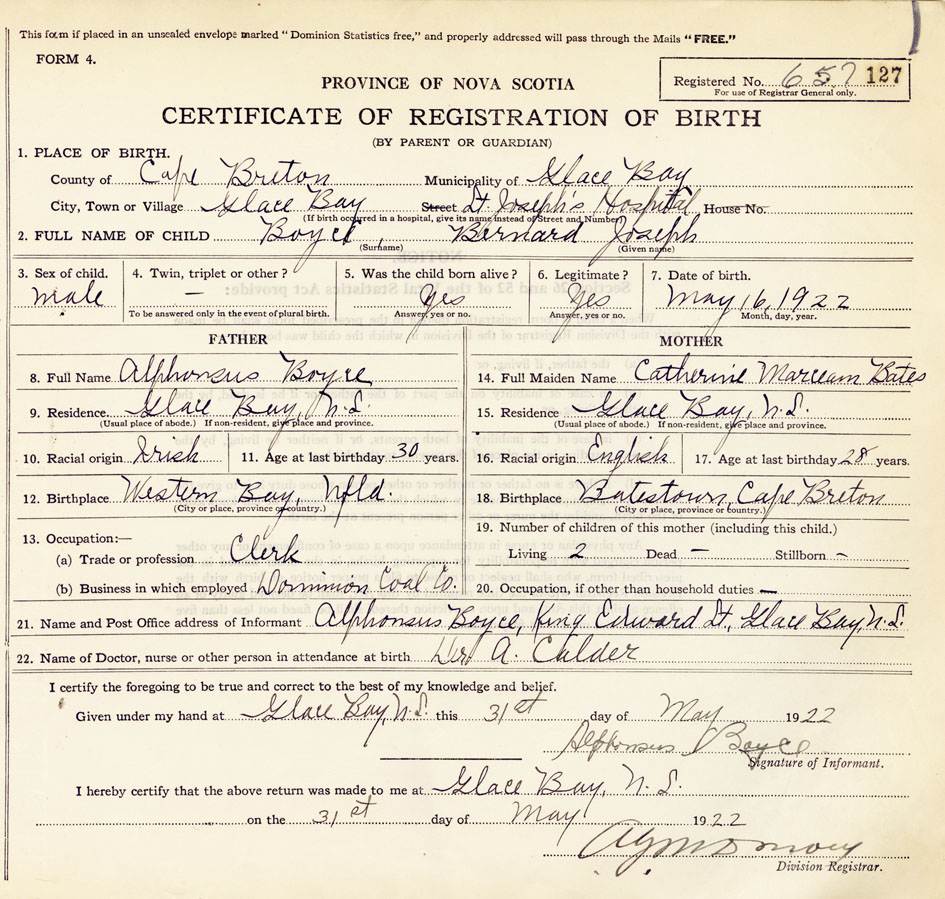 This form if placed in an unsealed envelope marked "Dominion Statistics free," and properly addressed will pass through the Mails "FREE."
FORM 4.
Registered No. 657 127
For use of Registrar General only.
PROVINCE OF NOVA SCOTIA
CERTIFICATE OF REGISTRATION OF BIRTH
(BY PARENT OR GUARDIAN)
1. PLACE OF BIRTH.
County of Cape Breton Municipality of Glace Bay
City, Town or Village Glace Bay Street St Joseph's Hospital House No.
(If birth occurred in a hospital, give its name instead of Street and Number)
2. FULL NAME OF CHILD Boyce, Bernard Joseph
(Surname) (Given name)
3. Sex of child. 4. Twin, triplet or other? 5. Was the child born alive? 6. Legitimate? 7. Date of birth.
male — Yes Yes May 16, 1922
To be answered only in the event of plural birth. Answer, yes or no. Answer, yes or no. Month, day, year.
FATHER MOTHER
8. Full Name Alphonsus Boyce 14. Full Maiden Name Catherine Bates
9. Residence. Glace Bay, N.S. 15. Residence Glace Bay, N.S.
(Usual place of abode.) If non-resident, give place and province. (Usual place of abode.) If non-resident, give place and province.
10. Racial origin Irish 11. Age at last birthday 30 years. 16. Racial origin English 17. Age at last birthday 28 years.
12. Birthplace Western Bay, Nfld. 18. Birthplace Batestown, Cape Breton
(City or place, province or country.) (City or place, province or country.)
13. Occupation:— 19. Number of children of this mother (including this child.)
(a) Trade or profession Clerk Living 2 Dead — Stillborn —
(b) Business in which employed Dominion Coal Co. 20. Occupation, if other than household duties —
21. Name and Post Office address of Informant Alphonsus Boyce, King Edward St., Glace Bay, N.S.
22. Name of Doctor, nurse or other person in attendance at birth Dr. A. Calder
I certify the foregoing to be true and correct to the best of my knowledge and belief.
Given under my hand at Glace Bay, N.S. this 31st day of May 1922
Alphonsus Boyce
Signature of Informant.
I hereby certify that the above return was made to me at Glace Bay, N.S.
on the 31st day of May 1922
Division Registrar.